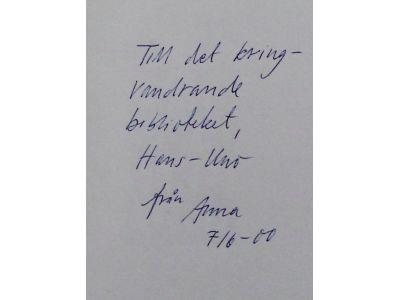 Till det kring-
vandrande
biblioteket,
Hans-Uno
från Anna
7/6-00